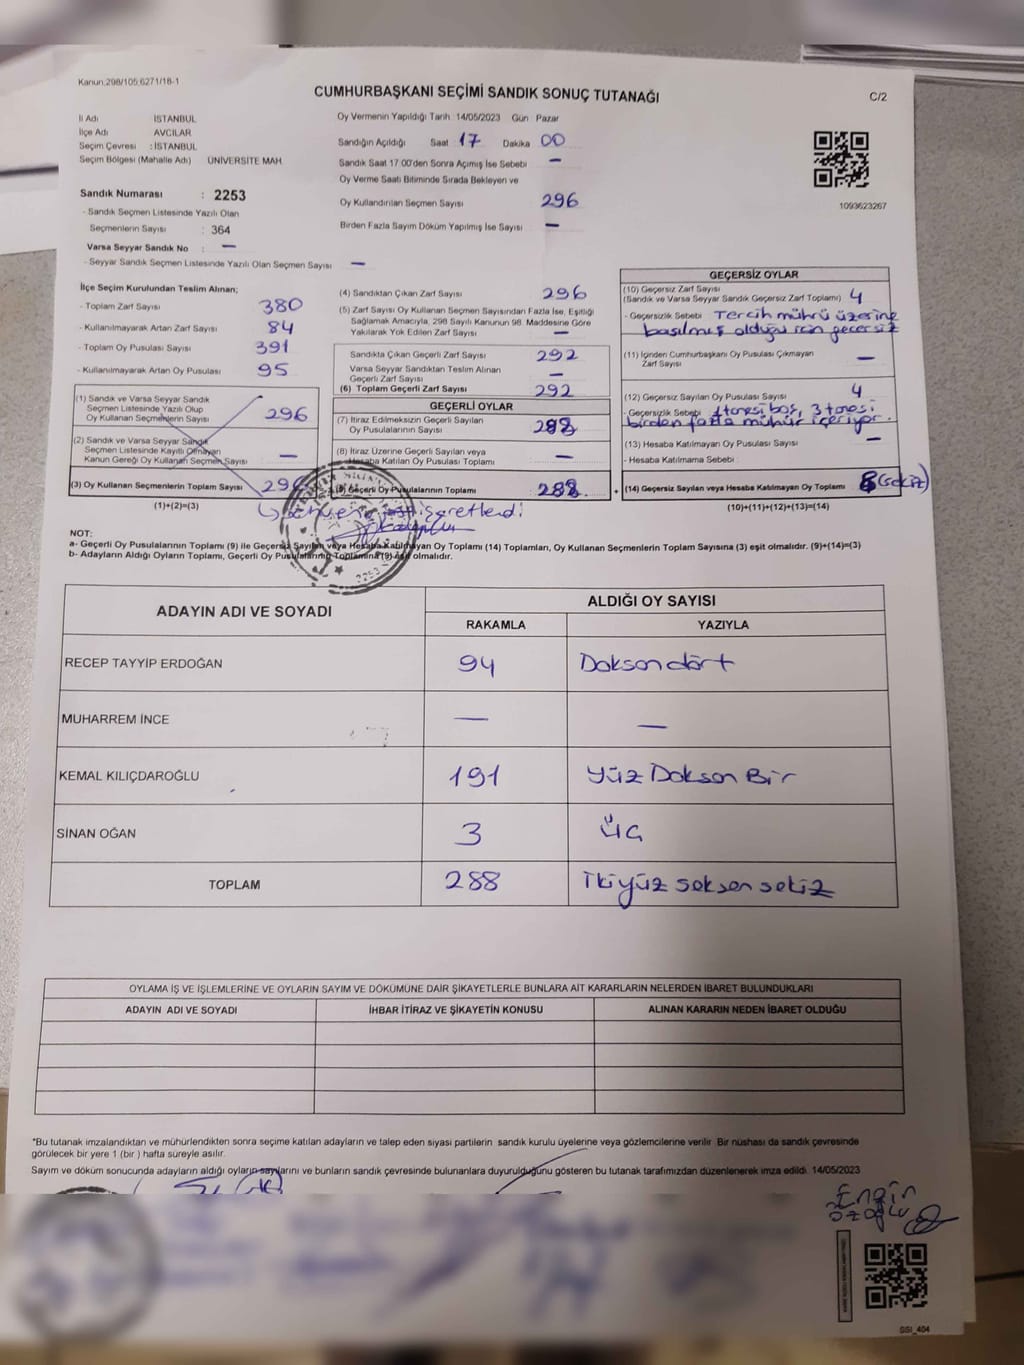 Kanun:298/105;6271/18-1
CUMHURBAŞKANI SEÇİMİ SANDIK SONUÇ TUTANAĞI
C/2
İl Adı İSTANBUL
İlçe Adı AVCILAR
Seçim Çevresi : İSTANBUL
Seçim Bölgesi (Mahalle Adı) ÜNİVERSİTE MAH.
Sandık Numarası : 2253
- Sandık Seçmen Listesinde Yazılı Olan
Seçmenlerin Sayısı : 364
Varsa Seyyar Sandık No : —
- Seyyar Sandık Seçmen Listesinde Yazılı Olan Seçmen Sayısı —
Oy Vermenin Yapıldığı Tarih 14/05/2023 Gün Pazar
Sandığın Açıldığı Saat 17 Dakika 00
Sandık Saat 17.00'den Sonra Açımış İse Sebebi —
Oy Verme Saati Bitiminde Sırada Bekleyen ve
Oy Kullandırılan Seçmen Sayısı 296
Birden Fazla Sayım Döküm Yapılmış İse Sayısı —
1093623267
İlçe Seçim Kurulundan Teslim Alınan;
- Toplam Zarf Sayısı 380
- Kullanılmayarak Artan Zarf Sayısı 84
- Toplam Oy Pusulası Sayısı 391
- Kullanılmayarak Artan Oy Pusulası 95
(1) Sandık ve Varsa Seyyar Sandık
Seçmen Listesinde Yazılı Olup
Oy Kullanan Seçmenlerin Sayısı 296
(2) Sandık ve Varsa Seyyar Sandık
Seçmen Listesinde Kayıtlı Olmayan
Kanun Gereği Oy Kullanan Seçmen Sayısı —
(3) Oy Kullanan Seçmenlerin Toplam Sayısı 296
(1)+(2)=(3)
(4) Sandıktan Çıkan Zarf Sayısı 296
(5) Zarf Sayısı Oy Kullanan Seçmen Sayısından Fazla İse, Eşitliği
Sağlamak Amacıyla, 298 Sayılı Kanunun 98. Maddesine Göre
Yakılarak Yok Edilen Zarf Sayısı —
Sandıkta Çıkan Geçerli Zarf Sayısı 292
Varsa Seyyar Sandıktan Teslim Alınan
Geçerli Zarf Sayısı —
(6) Toplam Geçerli Zarf Sayısı 292
GEÇERLİ OYLAR
(7) İtiraz Edilmeksizin Geçerli Sayılan
Oy Pusulalarının Sayısı 288
(8) İtiraz Üzerine Geçerli Sayılan veya
Hesaba Katılan Oy Pusulası Toplamı —
(9) Geçerli Oy Pusulalarının Toplamı 288
GEÇERSİZ OYLAR
(10) Geçersiz Zarf Sayısı
(Sandık ve Varsa Seyyar Sandık Geçersiz Zarf Toplamı) 4
- Geçersizlik Sebebi Tercih mührü üzerine
basılmış olduğu için geçersiz
(11) İçinden Cumhurbaşkanı Oy Pusulası Çıkmayan
Zarf Sayısı —
(12) Geçersiz Sayılan Oy Pusulası Sayısı 4
- Geçersizlik Sebebi 1 tanesi boş, 3 tanesi
birden fazla mühür içeriyor.
(13) Hesaba Katılmayan Oy Pusulası Sayısı —
- Hesaba Katılmama Sebebi
+ (14) Geçersiz Sayılan veya Hesaba Katılmayan Oy Toplamı 8 (sekiz)
(10)+(11)+(12)+(13)=(14)
NOT:
a- Geçerli Oy Pusulalarının Toplamı (9) ile Geçersiz Sayılan veya Hesaba Katılmayan Oy Toplamı (14) Toplamları, Oy Kullanan Seçmenlerin Toplam Sayısına (3) eşit olmalıdır. (9)+(14)=(3)
b- Adayların Aldığı Oyların Toplamı, Geçerli Oy Pusulalarının Toplamına (9) eşit olmalıdır.
ADAYIN ADI VE SOYADI
ALDIĞI OY SAYISI
RAKAMLA YAZIYLA
RECEP TAYYİP ERDOĞAN 94 Doksandört
MUHARREM İNCE — —
KEMAL KILIÇDAROĞLU 191 Yüz Doksan Bir
SİNAN OĞAN 3 Üç
TOPLAM 288 İkiyüz seksen sekiz
OYLAMA İŞ VE İŞLEMLERİNE VE OYLARIN SAYIM VE DÖKÜMÜNE DAİR ŞİKAYETLERLE BUNLARA AİT KARARLARIN NELERDEN İBARET BULUNDUKLARI
ADAYIN ADI VE SOYADI İHBAR İTİRAZ VE ŞİKAYETİN KONUSU ALINAN KARARIN NEDEN İBARET OLDUĞU
*Bu tutanak imzalandıktan ve mühürlendikten sonra seçime katılan adayların ve talep eden siyasi partilerin sandık kurulu üyelerine veya gözlemcilerine verilir. Bir nüshası da sandık çevresinde
görülecek bir yere 1 (bir) hafta süreyle asılır.
Sayım ve döküm sonucunda adayların aldığı oyların sayılarını ve bunların sandık çevresinde bulunanlara duyurulduğunu gösteren bu tutanak tarafımızdan düzenlenerek imza edildi. 14/05/2023
Engin
Özoğlu
GSI_404